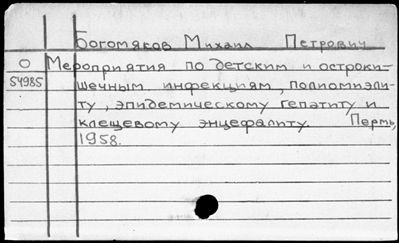 Богомяков Михаил Петрович
О Мероприятия по детским и острокi-
54985 шечным инфекциям, полиомиэли-
ту, эпидемическому гепатиту и
клещевому энцефалиту. Пермь,
1958.